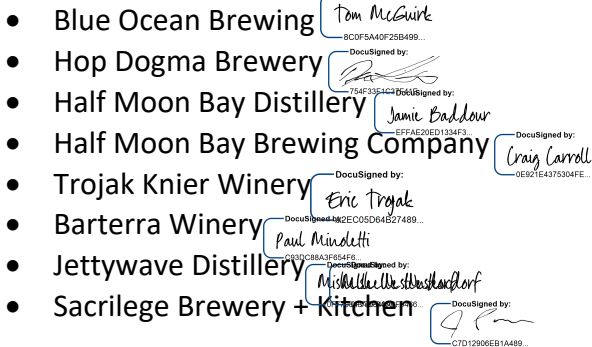 • Blue Ocean Brewing Tom McGuirk
8C0F5A40F25B499...
• Hop Dogma Brewery DocuSigned by:
• Half Moon Bay Distillery DocuSigned by:
Jamie Baddour
EFFAE20ED1334F3...
• Half Moon Bay Brewing Company DocuSigned by:
Craig Carroll
0E921E4375304FE...
• Trojak Knier Winery DocuSigned by:
Eric Trojak
• Barterra Winery DocuSigned by:
Paul Minoletti
C93DC88A3F654F6...
• Jettywave Distillery DocuSigned by:
• Sacrilege Brewery + Kitchen DocuSigned by:
C7D12906EB1A489...